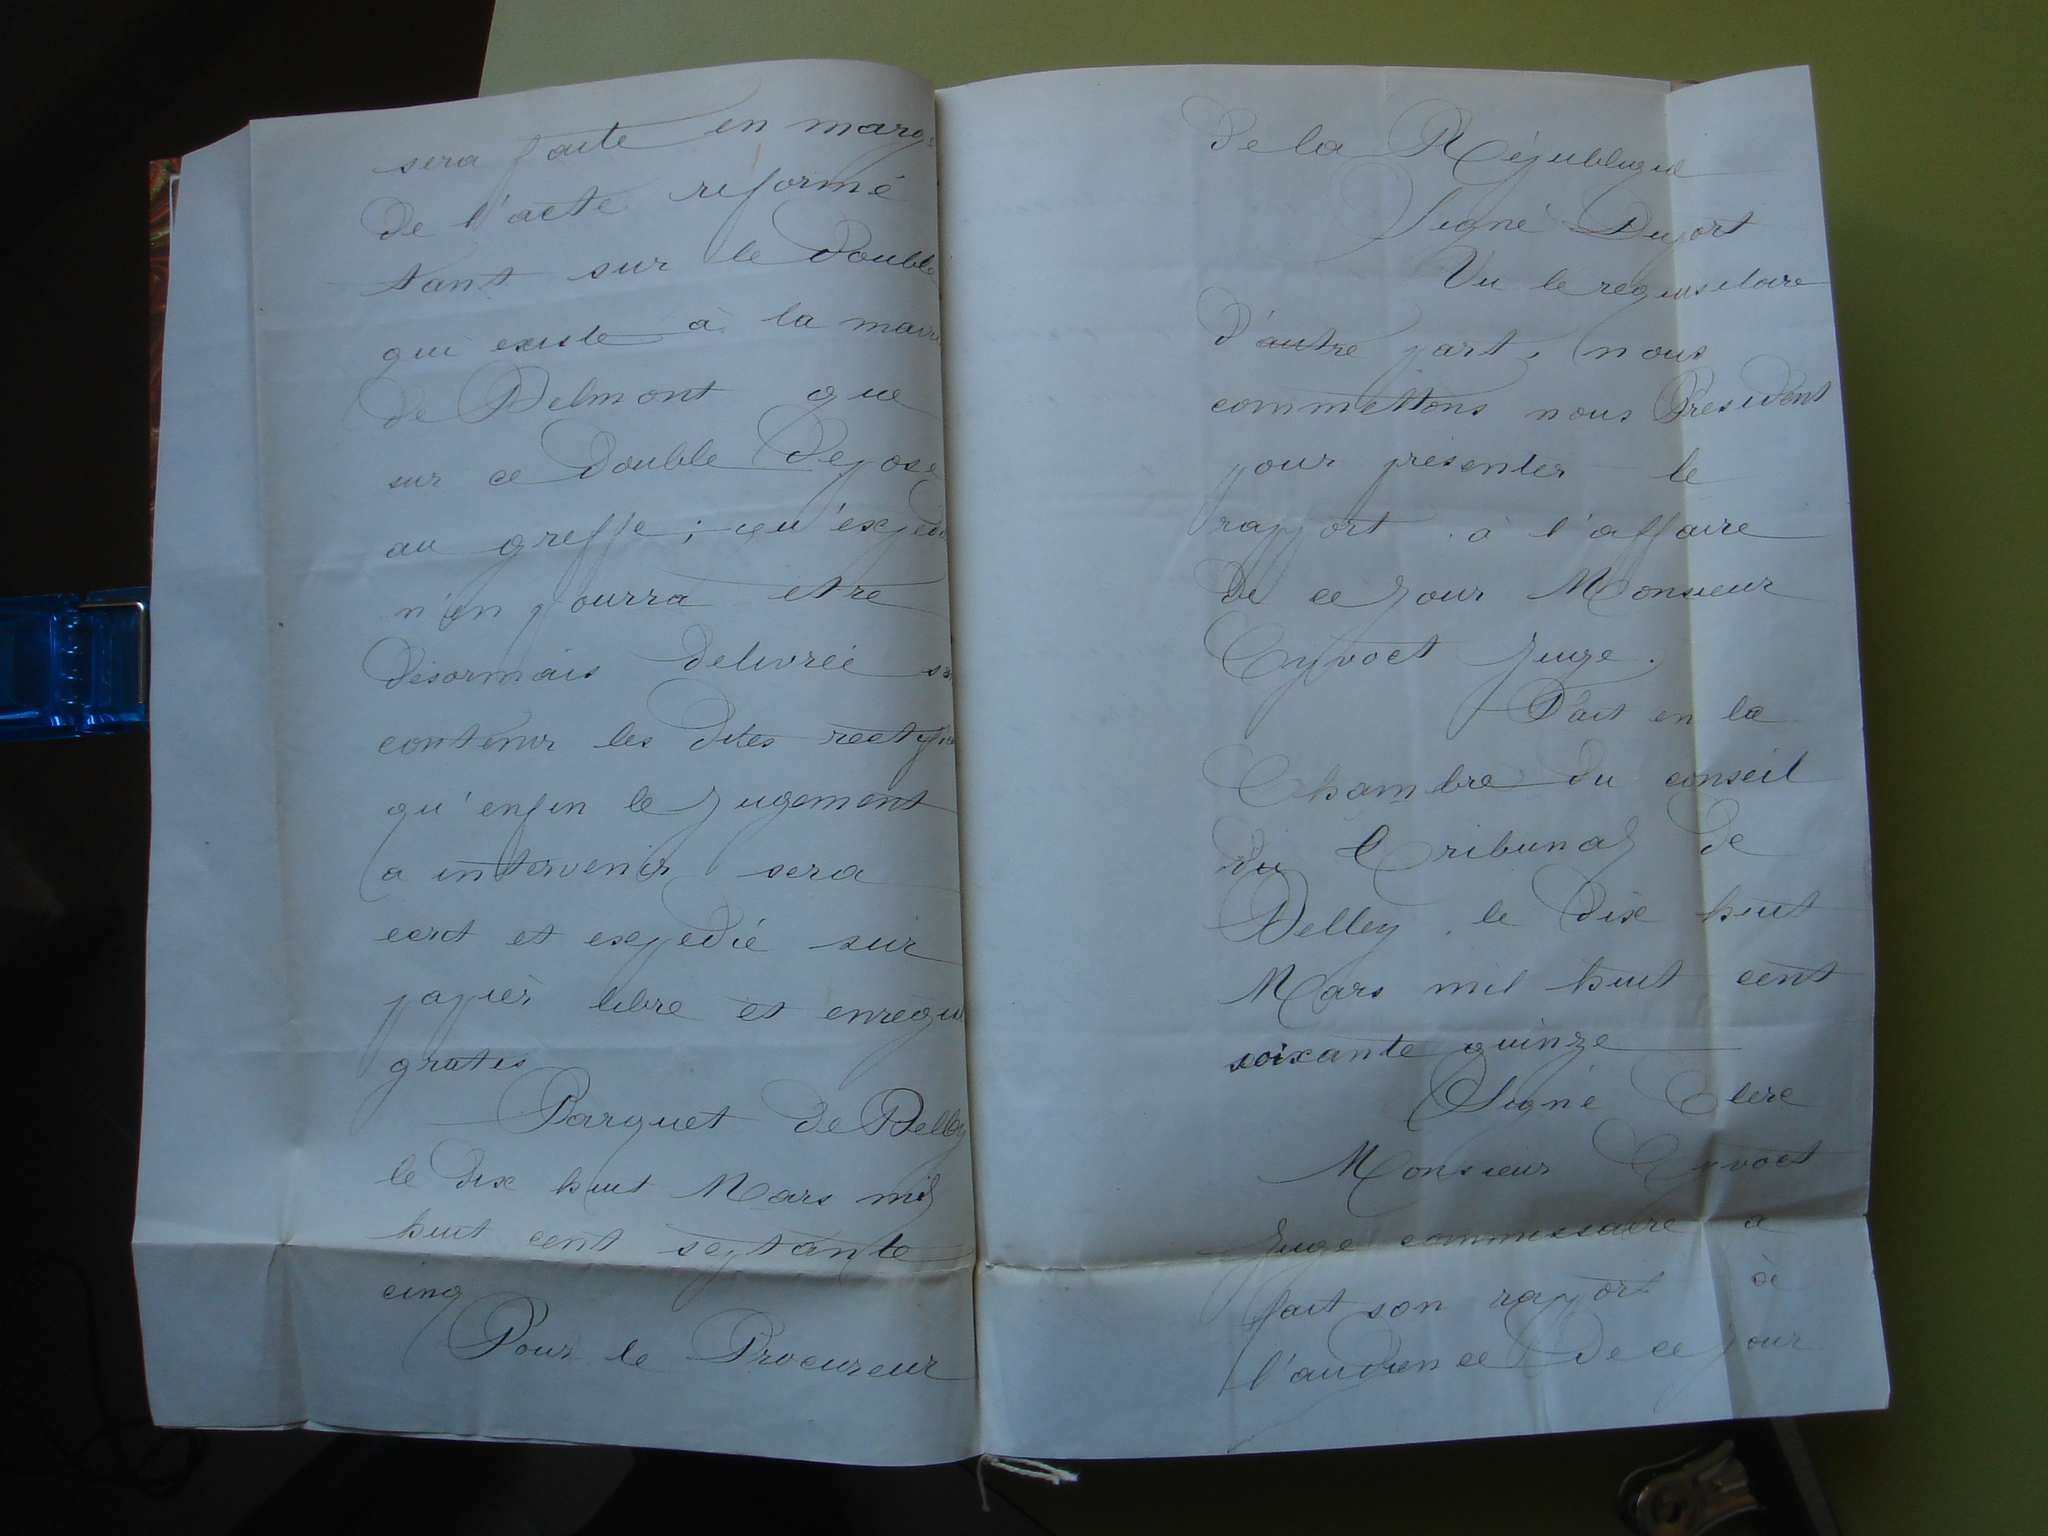 sera faite en marg
de l'acte réformé
tant sur le double
qui existe à la mairi
de Belmont que
sur ce double déposé
au greffe ; qu'expédi
n'en pourra être
désormais délivrée sa
contenir les dites rectific
qu'enfin le jugement
a intervenir sera
écrit et expédié sur
papier libre et enregis
gratis
Parquet de Belley
le dix huit Mars mil
huit cent septante
cinq
Pour le Procureur
de la République
Signé Duport
Vu le requisitoire
d'autre part, nous
commettons nous Président
pour présenter le
rapport à l'affaire
de ce jour Monsieur
Cyvoct Juge.
Fait en la
Chambre du conseil
du Tribunal de
Belley, le dix huit
Mars mil huit cent
soixante quinze
Signé Clerc
Monsieur Cyvoct
Juge commissaire a
fait son rapport à
l'audience de ce jour